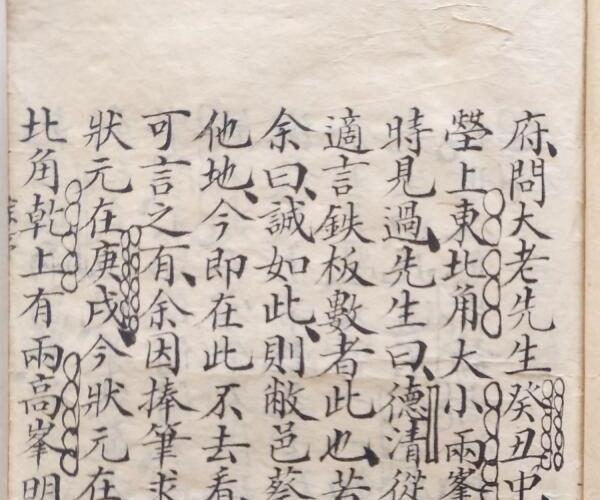 府、問大老先生癸丑中
塋上東北角大小兩峯
時見過、先生曰、德清從
適言鉄板數者此也、若
余曰、誠如此、則敝邑蔡
他地、今即在此不去看
可言之有、余因捧筆求
狀元在庚戌、今狀元在
北角乾上有兩高峯明